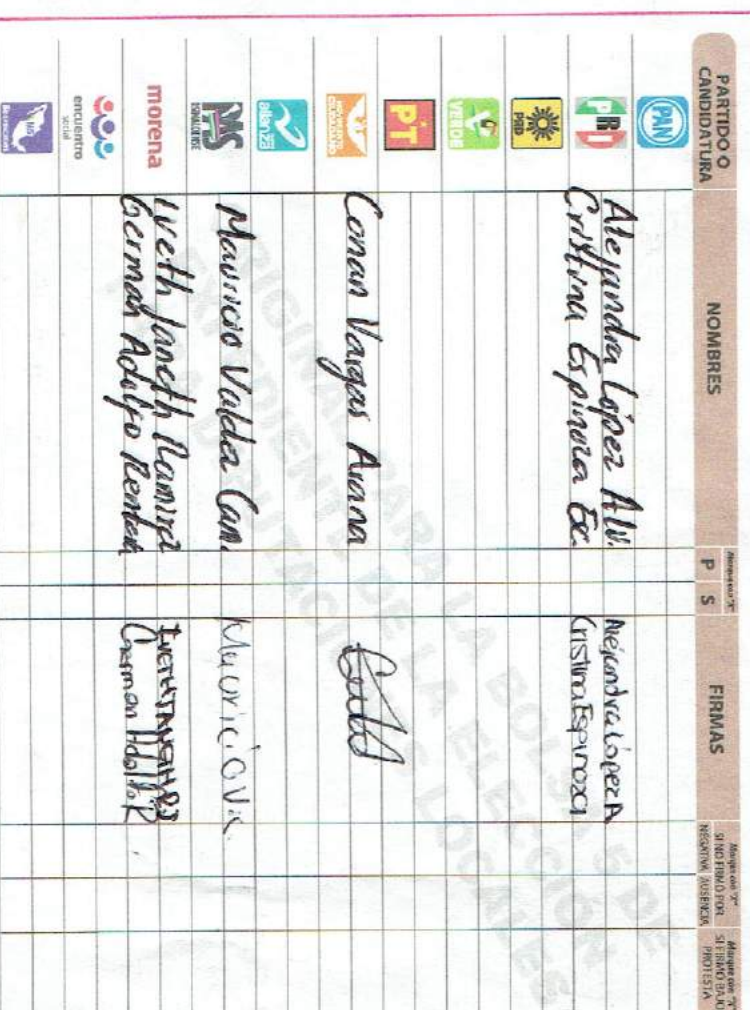 PARTIDO O
CANDIDATURA
NOMBRES
Marque con "X"
P S
FIRMAS
Marque con "X"
SI NO FIRMÓ POR
NEGATIVA AUSENCIA
Marque con "X"
SI FIRMÓ BAJO
PROTESTA
PAN
PRI
Alejandra López Alv.
Cristina Espinoza Ec.
Alejandra López A
Cristina Espinoza
PRD
VERDE
PT
MOVIMIENTO
CIUDADANO
Conan Vargas Arana
alianza
PAS
SINALOENSE
Mauricio Valdez Cam.
Mauricio V.
morena
Iveth Janeth Ramirez
German Adolfo Renteria
IVETH JANETH
German Adolfo R
encuentro
social
ORIGINAL PARA LA BOLSA DE
EXPEDIENTE DE LA ELECCIÓN
PARA DIPUTACIONES LOCALES